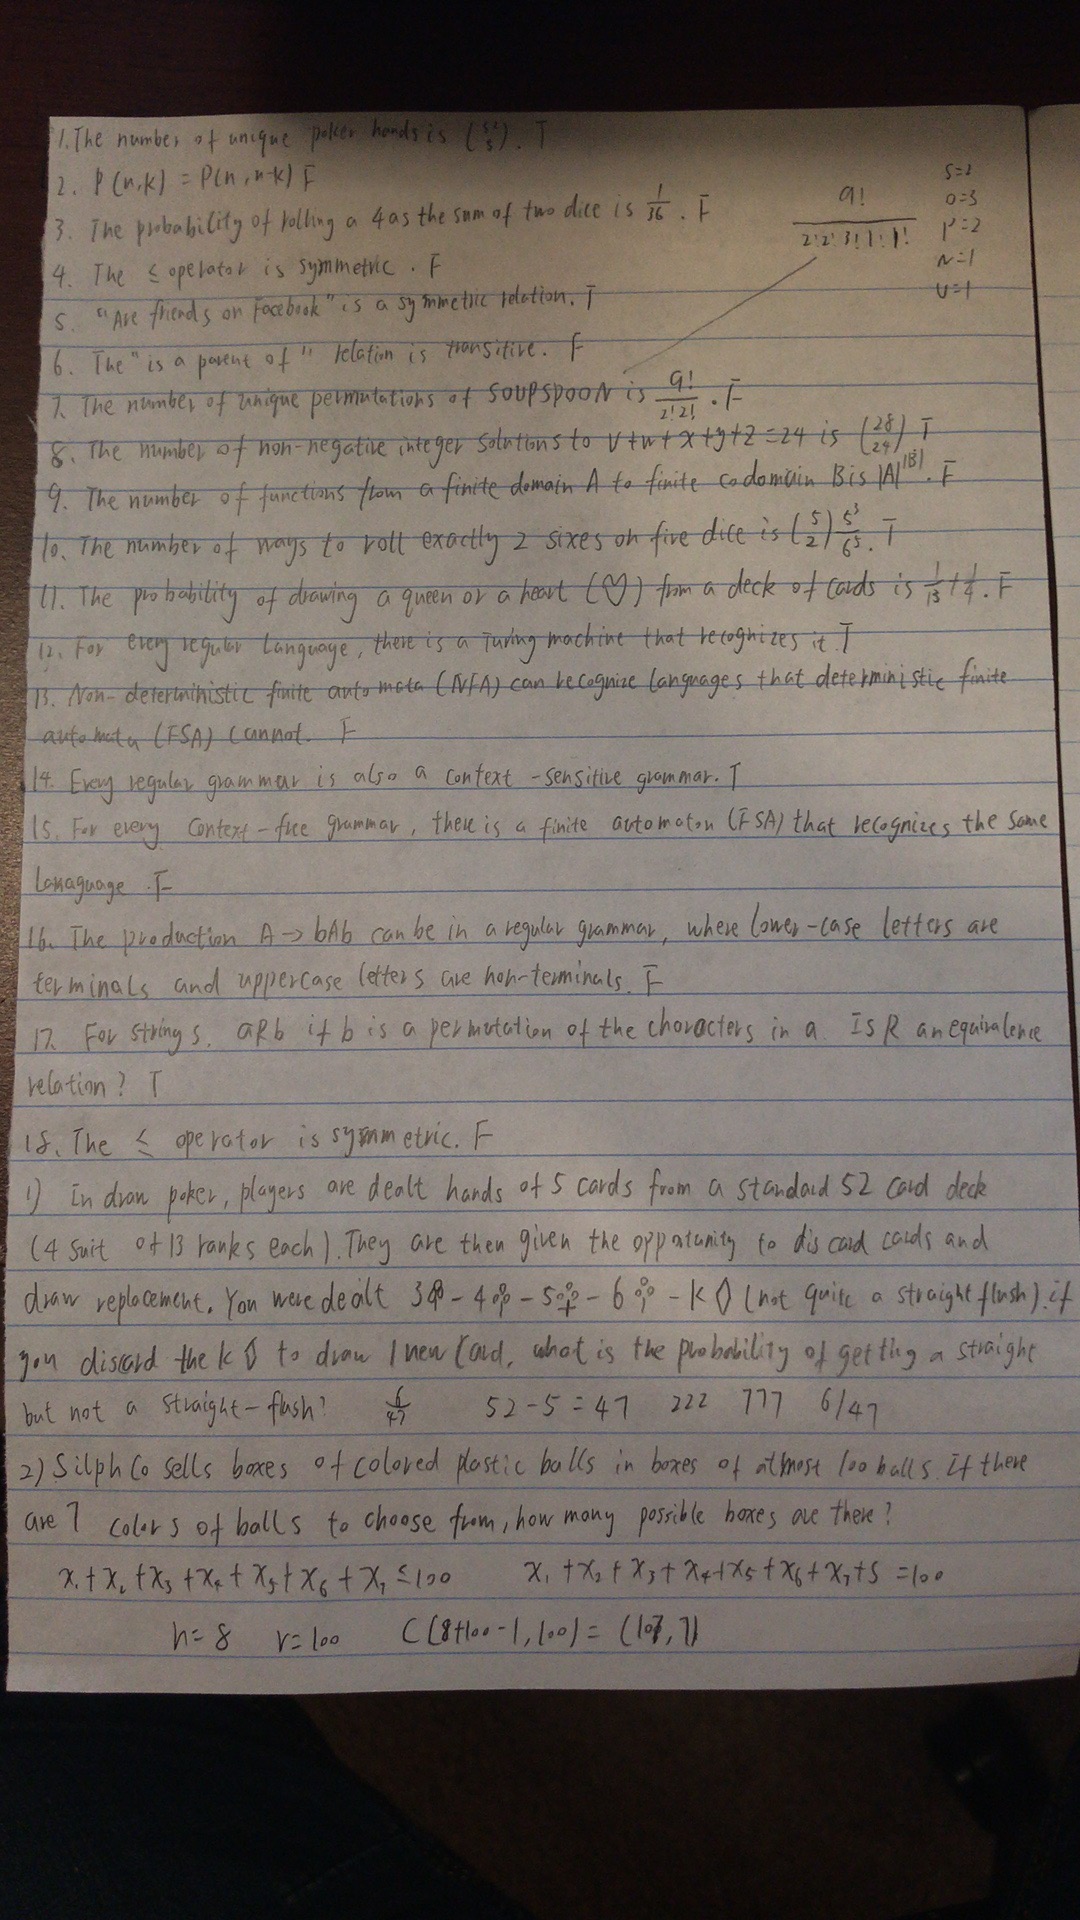 1. The number of unique poker hands is (52 5). T
2. P(n,k) = P(n,n-k) F
3. The probability of rolling a 4 as the sum of two dice is 1/36. F
9! / 2!2!3!1!1!
S=2
O=3
P=2
N=1
U=1
4. The ≤ operator is symmetric. F
5. "Are friends on Facebook" is a symmetric relation. T
6. The "is a parent of" relation is transitive. F
7. The number of unique permutations of SOUPSPOON is 9!/2!2!. F
8. The number of non-negative integer solutions to V+w+x+y+z=24 is (28 24) T
9. The number of functions from a finite domain A to finite codomain B is |A|^|B|. F
10. The number of ways to roll exactly 2 sixes on five dice is (5 2) 5^3/6^5. T
11. The probability of drawing a queen or a heart (♡) from a deck of cards is 1/13+1/4. F
12. For every regular Language, there is a Turing machine that recognizes it. T
13. Non-deterministic finite automata (NFA) can recognize languages that deterministic finite
automata (FSA) cannot. F
14. Every regular grammar is also a context-sensitive grammar. T
15. For every Context-free grammar, there is a finite automaton (FSA) that recognizes the same
Lanaguage. F
16. The production A→bAb can be in a regular grammar, where lower-case letters are
terminals and uppercase letters are non-terminals. F
17. For strings, aRb if b is a permutation of the characters in a. Is R an equivalence
relation? T
18. The ≤ operator is symmetric. F
1) In draw poker, players are dealt hands of 5 cards from a standard 52 card deck
(4 suit of 13 ranks each). They are then given the opportunity to discard cards and
draw replacement. You were dealt 3♣-4♣-5♣-6♣-K♢ (not quite a straight flush). if
you discard the K♢ to draw 1 new Card, what is the probability of getting a straight
but not a straight-flush? 6/47 52-5=47 222 777 6/47
2) Silph Co sells boxes of colored plastic balls in boxes of atmost 100 balls. If there
are 7 colors of balls to choose from, how many possible boxes are there?
x₁+x₂+x₃+x₄+x₅+x₆+x₇≤100 x₁+x₂+x₃+x₄+x₅+x₆+x₇+s=100
n=8 r=100 C(8+100-1,100)=(107,7)